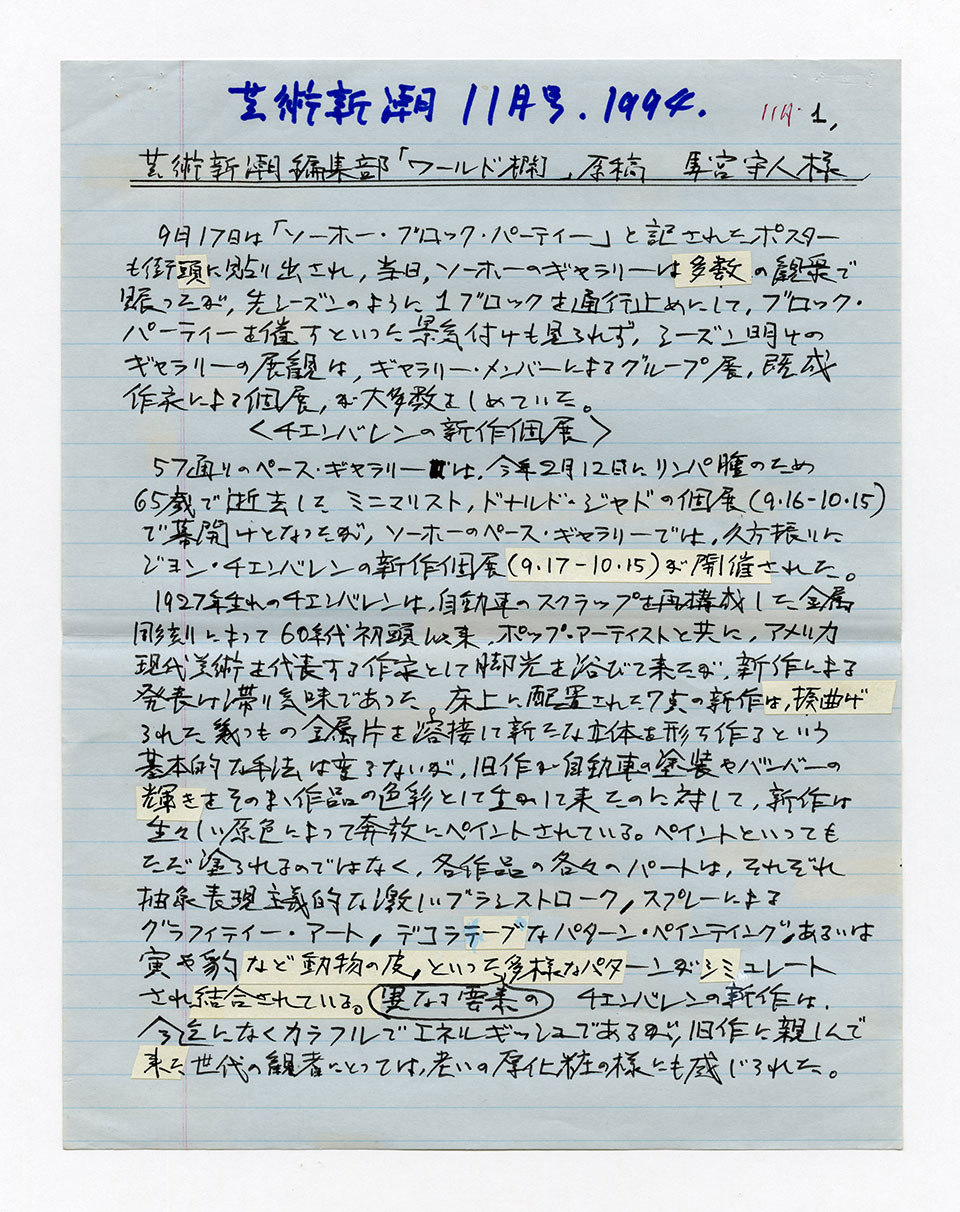 芸術新潮 11月号. 1994.
11月. 1,
芸術新潮編集部「ワールド欄」, 原稿 馬宮守人様
9月17日は「ソーホー・ブロック・パーティー」と記されたポスター
も街頭に貼り出され, 当日, ソーホーのギャラリーは多数の観衆で
賑ったが, 先シーズンのように1ブロックを通行止めにして, ブロック・
パーティーを催すといった景気付けも見られず, シーズン明けの
ギャラリーの展観は, ギャラリー・メンバーによるグループ展, 既成
作家による個展, が大多数をしめていた。
〈チエンバレンの新作個展〉
57通りのペース・ギャラリーでは, 今年2月12日にリンパ腫のため
65歳で逝去した ミニマリスト, ドナルド・ジャドの個展(9.16-10.15)
で幕開けとなったが, ソーホーのペース・ギャラリーでは, 久方振りに
ジョン・チエンバレンの新作個展(9.17-10.15)が開催された。
1927年生れのチエンバレンは, 自動車のスクラップを再構成した金属
彫刻によって60年代初頭以来, ポップ・アーティストと共に, アメリカ
現代美術を代表する作家として脚光を浴びて来たが, 新作による
発表は滞り気味であった。床上に配置された7点の新作は, 捩曲げ
られた幾つもの金属片を溶接して新たな立体を形ち作るという
基本的な手法は変らないが, 旧作が自動車の塗装やバンパーの
輝きをそのまゝ作品の色彩として生かして来たのに対して, 新作は
生々しい原色によって奔放にペイントされている。ペイントといっても
ただ塗られるのではなく, 各作品の各々のパートは, それぞれ
抽象表現主義的な激しいブラシストローク, スプレーによる
グラフィティー・アート, デコラテーブなパターン・ペインティング, あるいは
寅や豹など動物の皮, といった多様なパターンがシミュレート
され結合されている。異なる要素の チエンバレンの新作は,
今迄になくカラフルでエネルギッシュであるが, 旧作に親しんで
来た世代の観者にとっては, 老いの厚化粧の様にも感じられた。